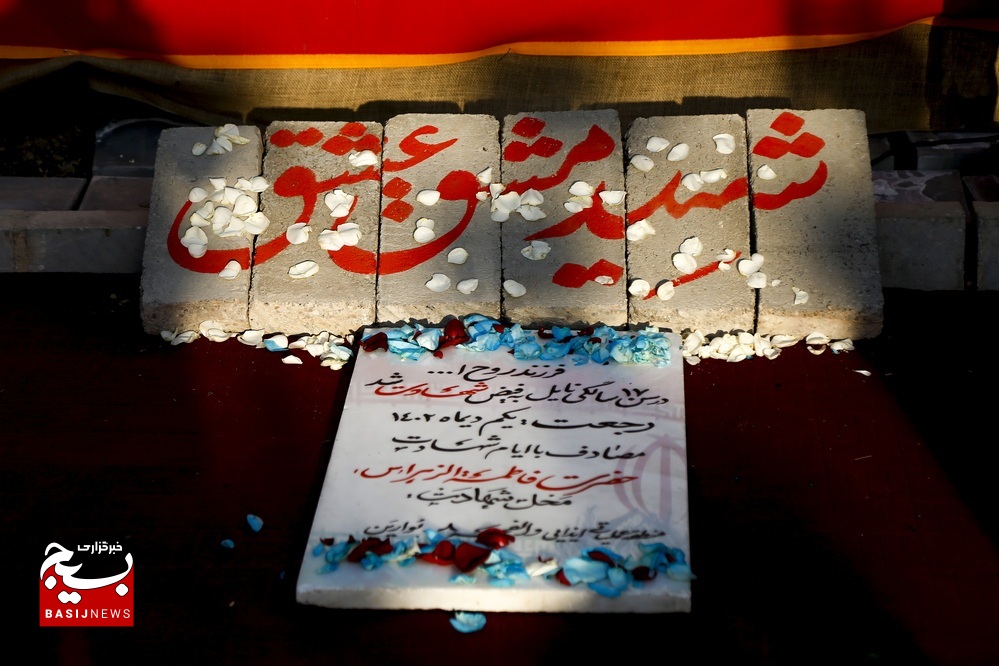 شهید مشق عشق
فرزند روح ا...
درسن ۱۷ سالگی نایل به فیض شهادت شد
رجعت: یکم دیماه ۱۴۰۲
مصادف با ایام شهادت
حضرت فاطمة الزهرا س،
محل شهادت:
منطقه عملیاتی
خبرگزاری
بسیج
BASIJNEWS